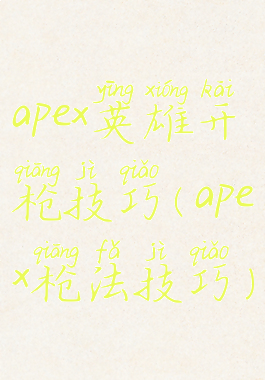 yīng xióng kāi
apex英雄开
qiāng jì qiǎo
枪技巧(ape
qiāng fǎ jì qiǎo
x枪法技巧)